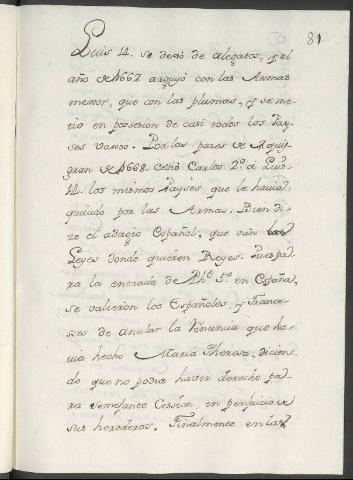 81
Luis 14. se dexó de alegatos, y el
año de 1667 arguyó con las Armas
mexor, que con las plumas, y se me-
tio en possesion de casi todos los Pay-
ses vaxos. Por las pazes de Aquis-
gran de 1668. Cedió Carlos 2.º á Luis
14. los mismos Payses que le havia
quitado por las Armas. Bien di-
ze el adagio Español, que van
Leyes donde quieren Reyes. Pues pa-
ra la entrada de Phe. 5.º en España,
se valieron los Españoles, y France-
ses de anular la renuncia que ha-
via hecho Maria Theresa, dicien-
do que no podia haver derecho pa-
ra semejante Cession, en perjuicio de
sus herederos. Finalmente en las